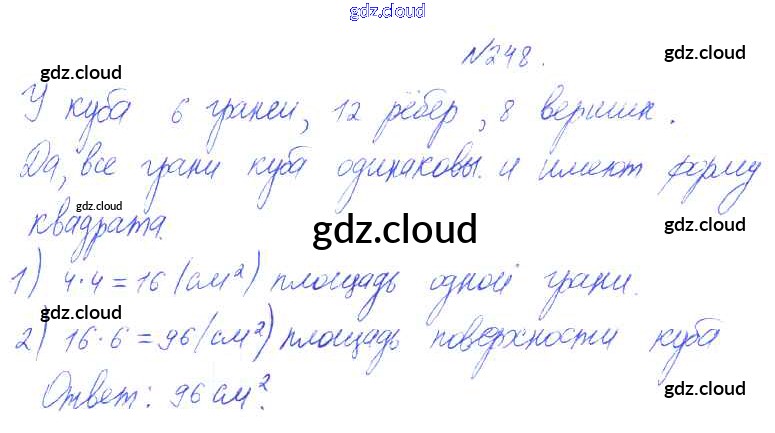 gdz.cloud
№248.
gdz.cloud
gdz.cloud
У куба 6 граней, 12 рёбер, 8 вершин.
gdz.cloud
Да, все грани куба одинаковы и имеют форму
gdz.cloud
gdz.cloud
квадрата.
gdz.cloud
1) 4·4=16 (см²) площадь одной грани.
gdz.cloud
gdz.cloud
2) 16·6=96 (см²) площадь поверхности куба
gdz.cloud
Ответ: 96 см².